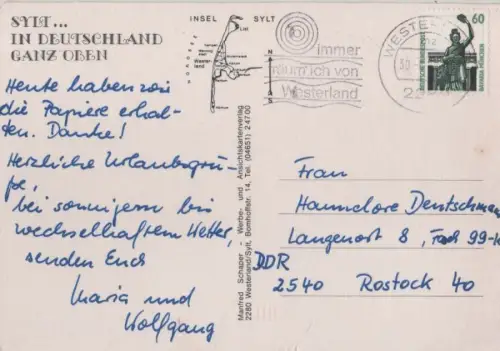 SYLT...
IN DEUTSCHLAND
GANZ OBEN
INSEL SYLT
List
Westerland
Heute haben wir
die Papiere erhal-
ten. Danke!
Herzliche Urlaubsgrü-
ße,
bei sonnigem bis
wechselhaftem Wetter,
senden Euch
Maria und
Wolfgang
Manfred Schaper - Werbe- und Ansichtskartenverlag
2280 Westerland/Sylt, Bomhoffstr. 14, Tel. (04651) 2 47 00
immer
träum ich von
Westerland
60
DEUTSCHE BUNDESPOST
BAVARIA MÜNCHEN
Frau
Hannelore
Langenort 8,
DDR
2540 Rostock 40